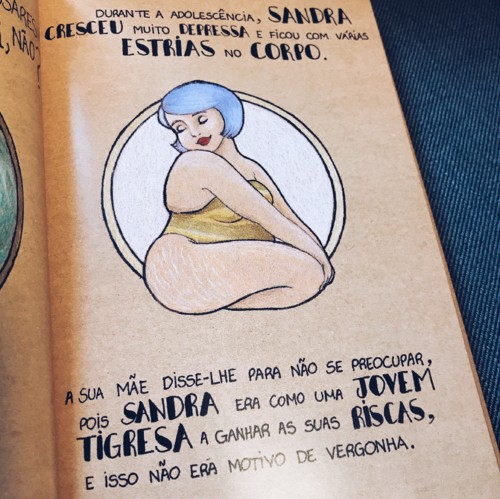 DURANTE A ADOLESCÊNCIA, SANDRA
CRESCEU MUITO DEPRESSA E FICOU COM VÁRIAS
ESTRIAS NO CORPO.
A SUA MÃE DISSE-LHE PARA NÃO SE PREOCUPAR,
POIS SANDRA ERA COMO UMA JOVEM
TIGRESA A GANHAR AS SUAS RISCAS,
E ISSO NÃO ERA MOTIVO DE VERGONHA.